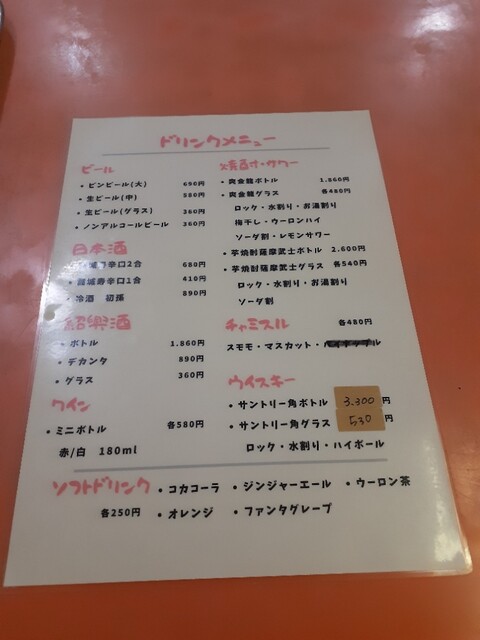 ドリンクメニュー
ビール
・ビンビール(大) 690円
・生ビール(中) 580円
・生ビール(グラス) 360円
・ノンアルコールビール 360円
日本酒
城寿辛口2合 680円
・ 城寿辛口1合 410円
・冷酒 初孫 890円
紹興酒
・ボトル 1.860円
・デカンタ 890円
・グラス 360円
ワイン
・ミニボトル 各580円
赤/白 180ml
焼酎・サワー
・爽金龍ボトル 1.860円
・爽金龍グラス 各480円
ロック・水割り・お湯割り
梅干し・ウーロンハイ
ソーダ割・レモンサワー
・芋焼酎薩摩武士ボトル 2.600円
・芋焼酎薩摩武士グラス 各540円
ロック・水割り・お湯割り
ソーダ割
チャミスル 各480円
スモモ・マスカット・
ウイスキー
・サントリー角ボトル 3.300円
・サントリー角グラス 530円
ロック・水割り・ハイボール
ソフトドリンク ・コカコーラ ・ジンジャーエール ・ウーロン茶
各250円 ・オレンジ ・ファンタグレープ